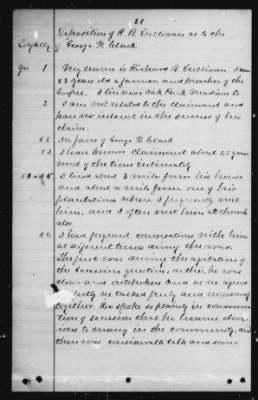 21
Deposition of R. B. Sullivan as to the
Loyalty of George W. Clark
Qu 1 My name is Richard B. Sullivan. I am
53 years old a farmer, and preacher of the
Gospel. I live near Oak Park Madison Co
2 I am not related to the claimant and
have no interest in the success of his
claim.
52 In favor of George W. Clark
53 I have known Claimant about 25 years
most of the time intimately
I lived about 3 miles from his house
and about a mile from one of his
plantations where I frequently met
him, and I often met him at church
also.
56 I had frequent conversations with him
at different times during the war.
The first was during the agitation of
the Secession question, on this, he was
clear and outspoken and as we agreed
he talked freely and
together. He spoke so plainly in condemna-
tion of secession that he became obnox-
ious to many in the community, and
there was considerable talk and some